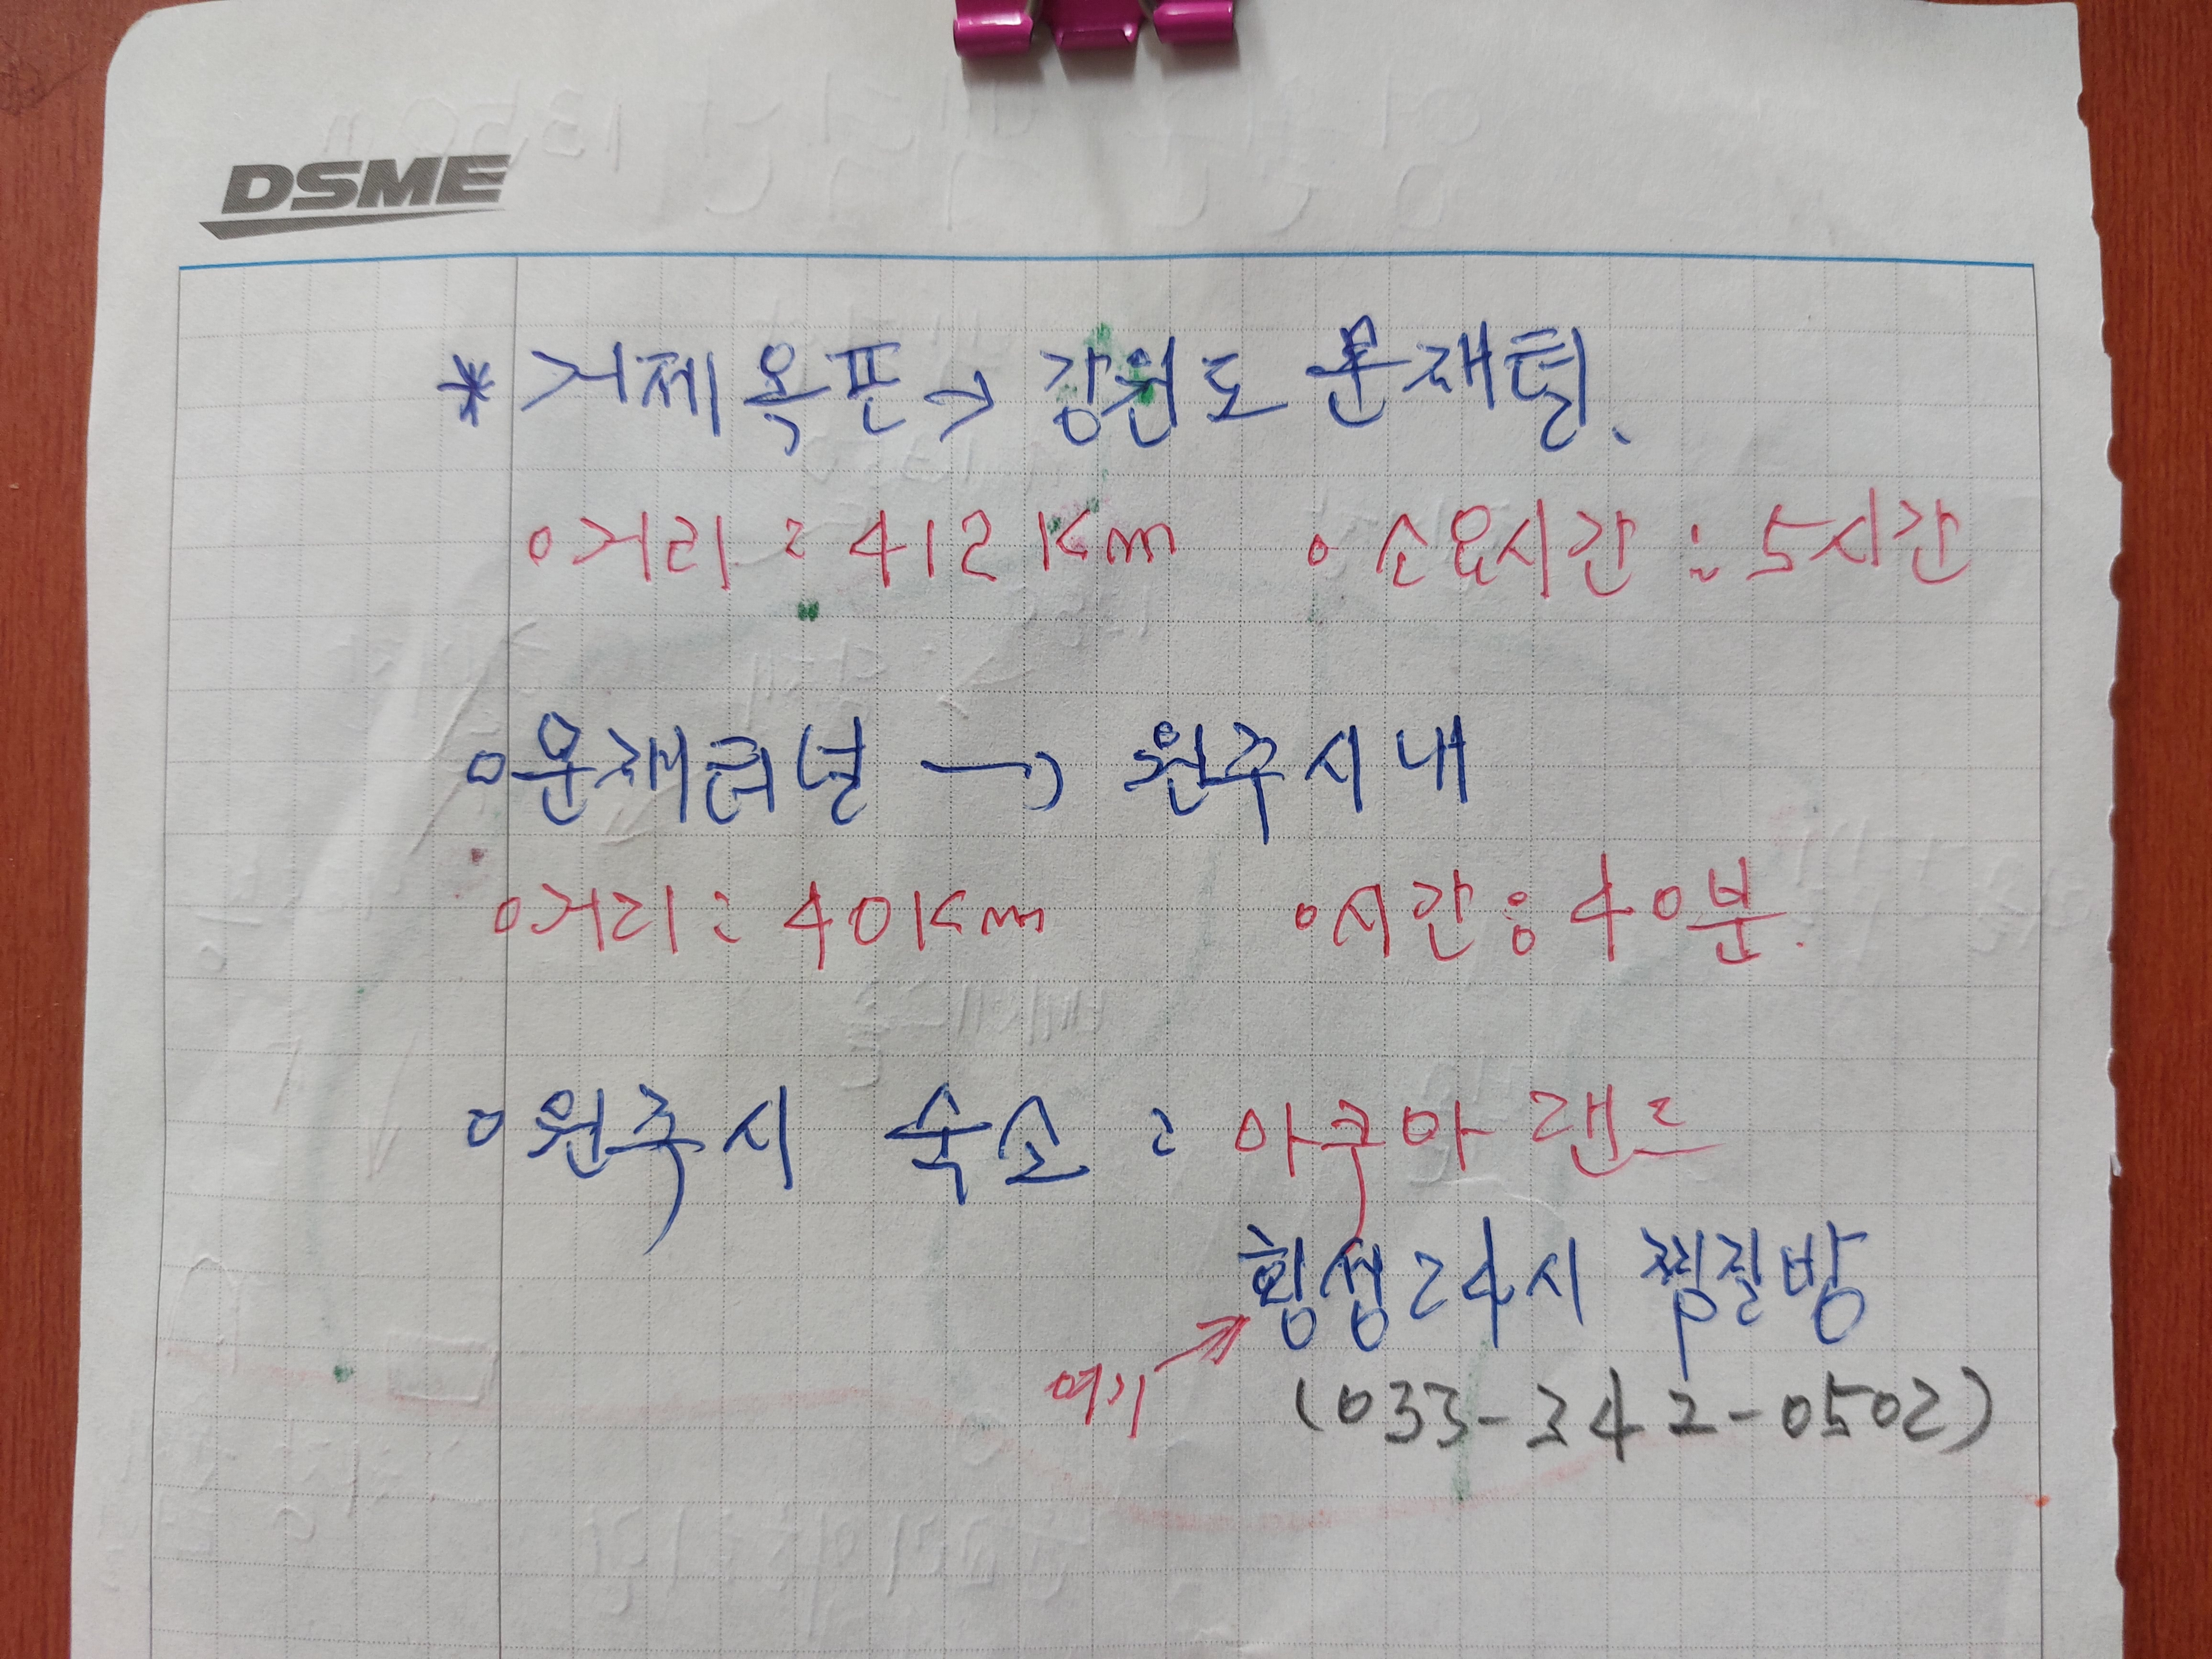 DSME
* 거제옥포→강원도 문재털.
o거리:412Km o소요시간:5시간
o문재터널 → 원주시내
o거리:40Km o시간:40분.
o원주시 숙소: 아쿠아랜드
횡성24시 찜질방
여기 (033-342-0502)